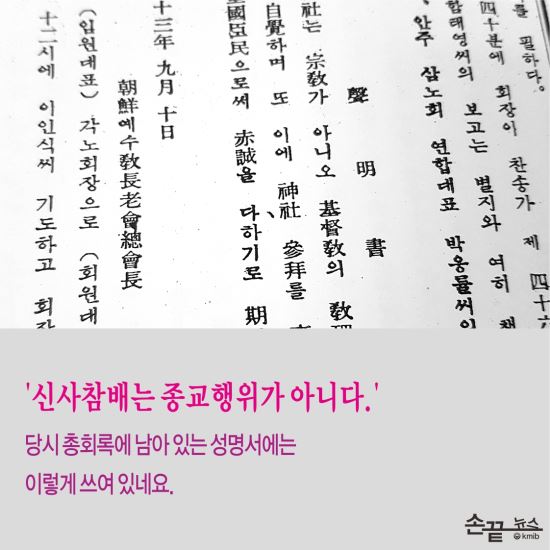 를 필하다.
四十分에 회장이 찬송가 제 四十六
함태영씨의 보고는 별지와 여히 채
안주 삼노회 연합대표 박응률씨의
聲明書
社는 宗敎가 아니오 基督敎의 敎理
自覺하며 또 이에 神社 參拜를
國臣民으로써 赤誠을 다하기로 期
十三年 九月 十日
朝鮮예수敎長老會總會長
(임원대표) 각노회장으로 (회원대
十二시에 이인식씨 기도하고 회장
'신사참배는 종교행위가 아니다.'
당시 총회록에 남아 있는 성명서에는
이렇게 쓰여 있네요.
손끝 뉴스
kmib